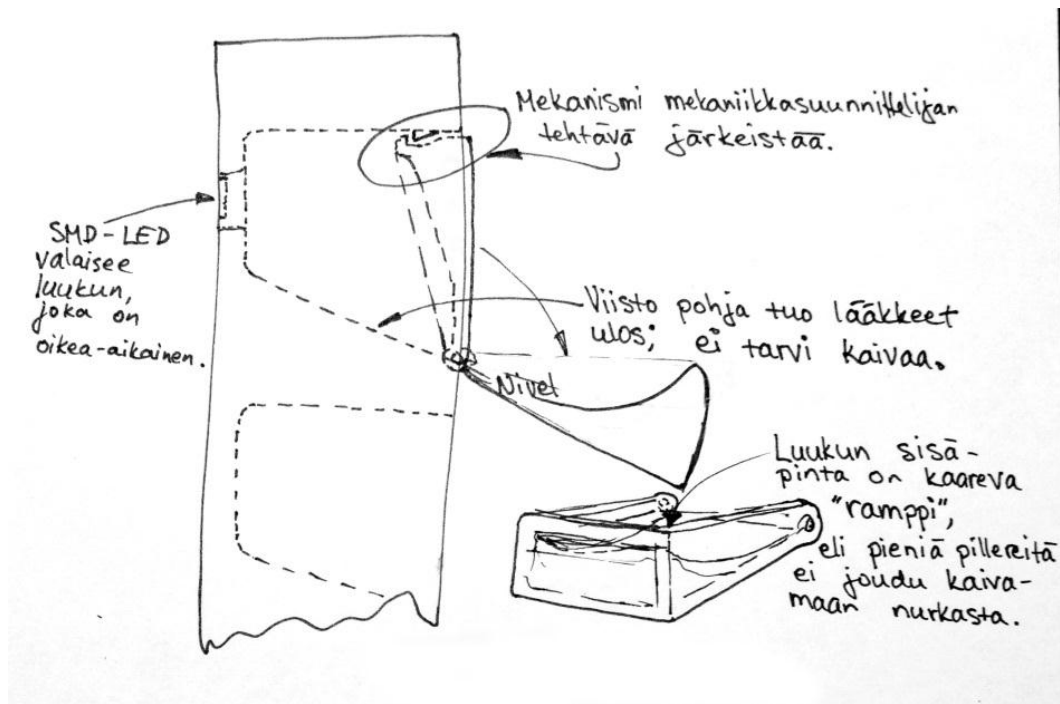 Mekanismi mekaniikkasuunnittelijan
tehtävä järkeistää.
SMD-LED
valaisee
luukun,
joka on
oikea-aikainen.
Viisto pohja tuo lääkkeet
ulos; ei tarvi kaivaa.
Nivel
Luukun sisä-
pinta on kaareva
"ramppi",
eli pieniä pillereitä
ei joudu kaiva-
maan nurkasta.